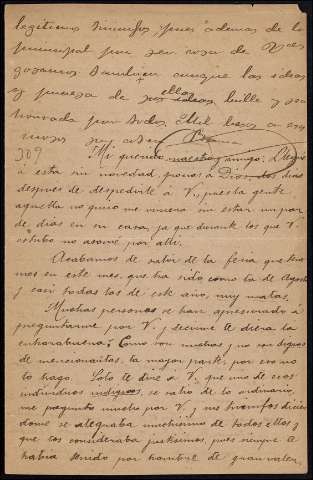 legitimos triunfos, pues ademas de lo
principal por ser cosa de V. nos
gozamos tambien aunque las ideas
y pureza de sus ellos bulle y sea
honrada por todos. Mil besos a esos
monos
309 Mi querido maestro y amigo: Llegué
á esta sin novedad, gracias á Dios, dos dias
despues de despedirte á V., pues la gente
aquella no quiso me viniera sin estar un par
de dias en su casa, ya que durante los que V.
estubo no asomé por alli.
Acabamos de salir de la feria que tene
mos en este mes, que ha sido como la de Agosto
y casi todas las de este año, muy malas.
Muchas personas se han apresurado á
preguntarme por V. y decirme le diera la
enhorabuena; como son muchas y no son dignas
de mencionarlas, la mayor parte, por eso no
lo hago. Solo le dire a V. que uno de esos
individuos indignos, se salio de lo ordinario,
me pregunto mucho por V. y sus triunfos dicien
dome se alegraba muchisimo de todos ellos y
que los consideraba justisimos, pues siempre te
habia tenido por hombre de gran valer,